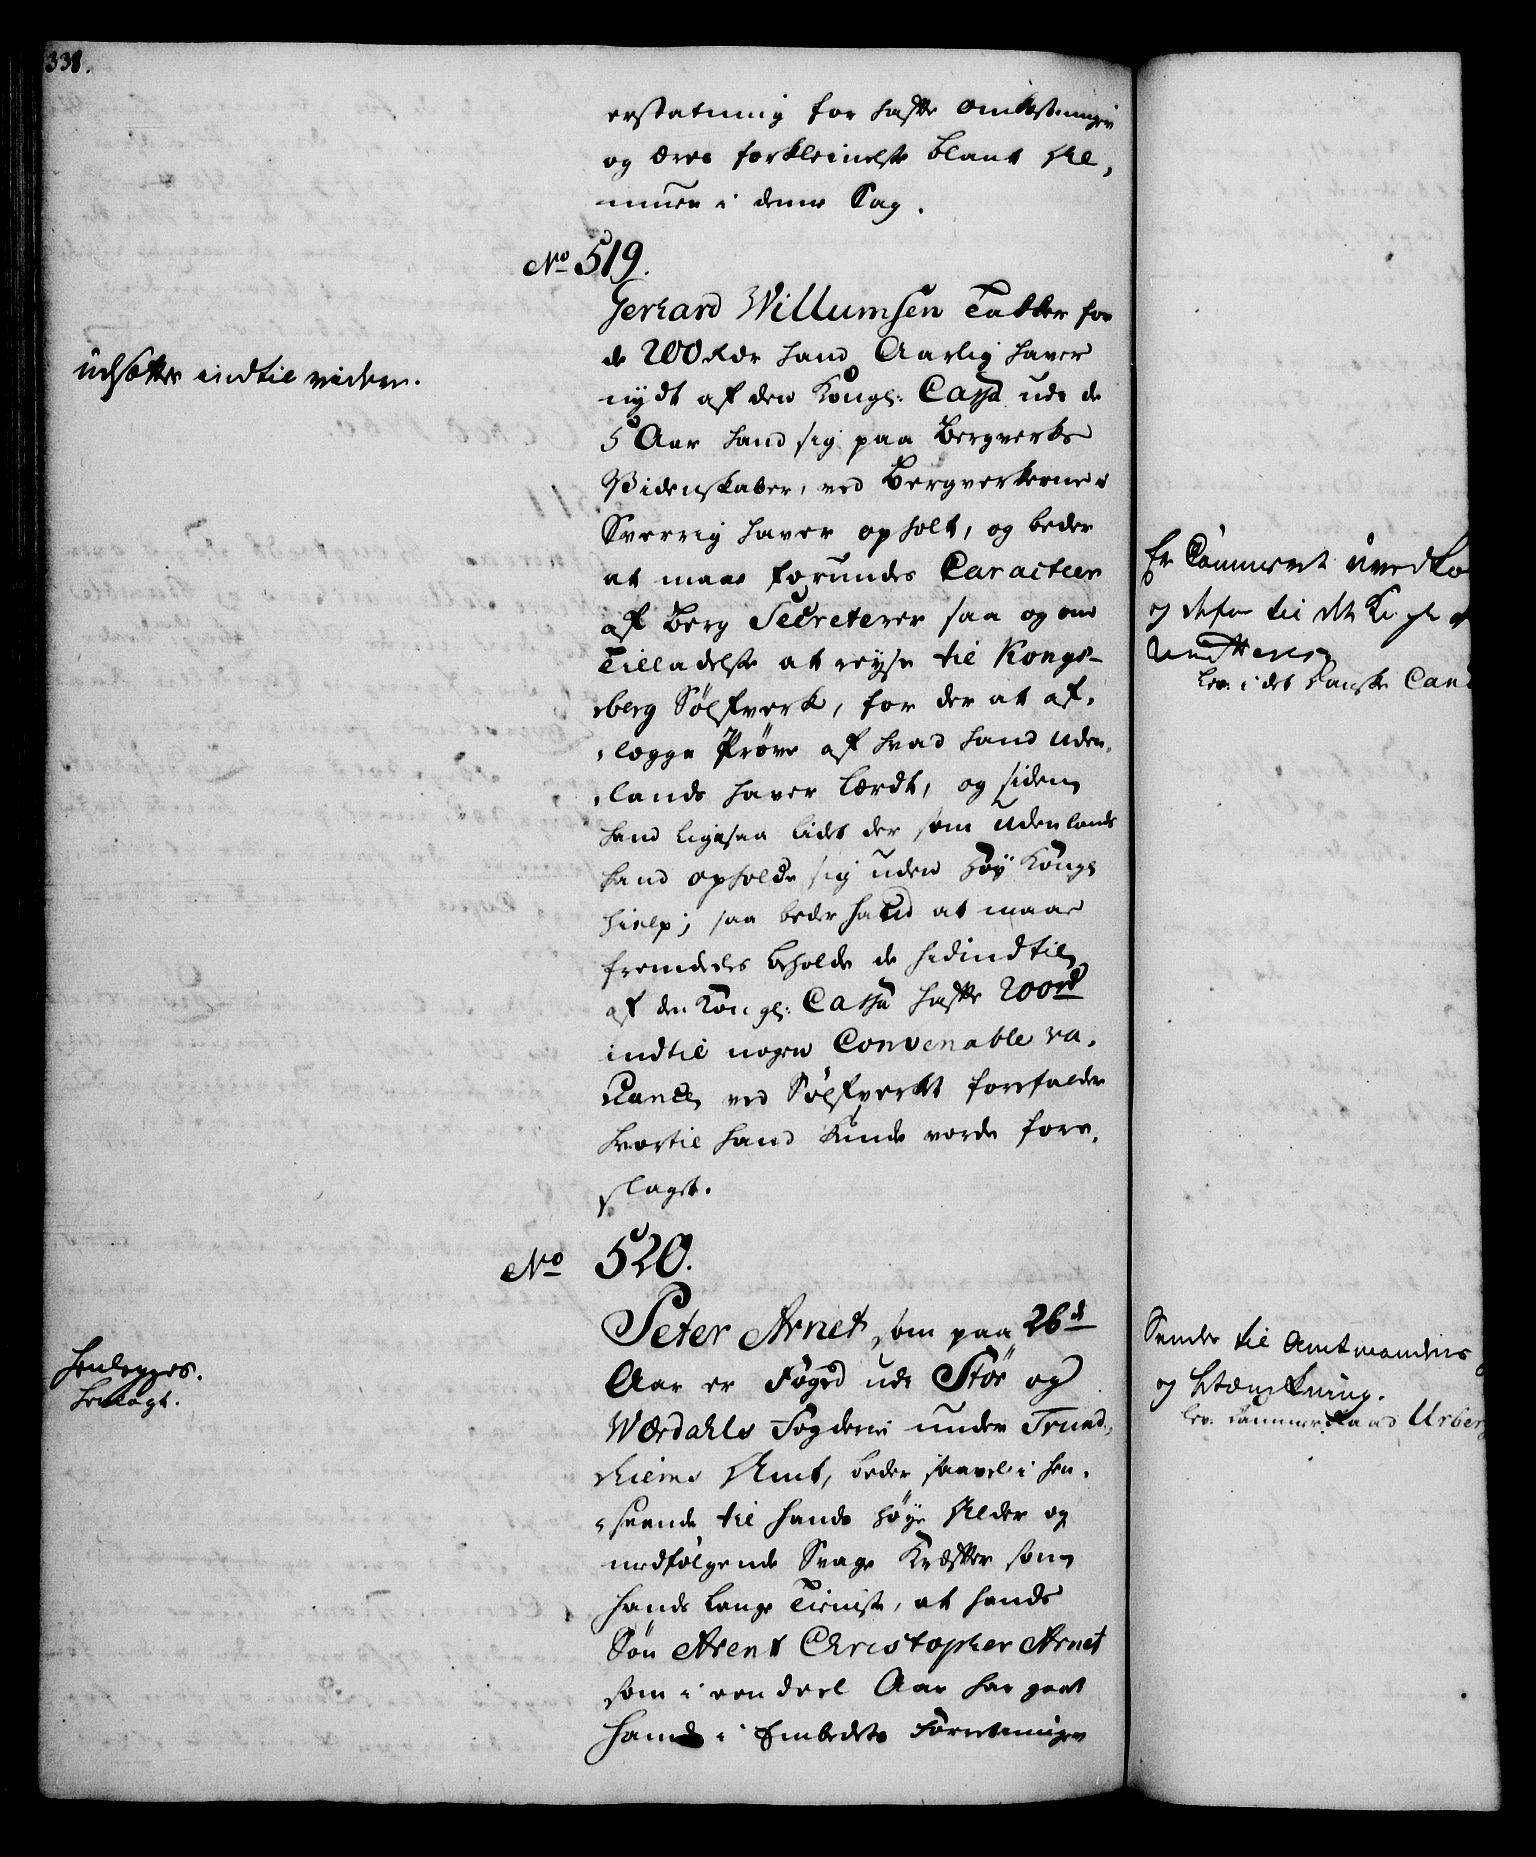 338.
erstatning for hafte omkostninger
og æres forkleinelse blant Al,
muen i denne Sag.
No 519.
Gerhard Willumsen Takker for
de 200 Rdr hand Aarlig haver
nydt af den Kongl: Cassa udi de
5 Aar hand sig paa Bergverks
Videnskaber, ved Bergverkerne i
Sverrig haver opholt, og beder
at maae forundes Caracteer
af Berg Secreterer saa og om
Tilladelse at reyse til Kongs-
berg Sølfverk, for der at af,
lægge Prøve af hvad hand uden,
lands haver lærdt, og siden
hand ligesaa lidet der som udenlands
kand opholde sig uden høy Kongl
hielp; saa beder hand at maae
fremdeles beholde de hidindtil
af den Kongl: Cassa hafte 200rd
indtil nogen Convenable va,
cance ved Sølfverket forefalder
hvortil hand kunde vorde fore,
slaget.
udsættes indtil viden.
No 520.
Peter Arnet som paa 26de
Aar er Foged udi Stör og
Værdahls Fogderie under Trund,
hiems Amt, beder saavel i hen,
seende til hands høye Alder og
medfølgende Svage Kræfter som
hands lange Tieniste, at hands
Søn Arent Christopher Arnet
som i een deel Aar har gaaet
hand i Embedets Forretninger
henlegges.
henlagt.
Er Communicert
og til det
lev. i det Danske Can
Sendes til Amtmandens
og betænkning.
lev. Cammer Raad Urberg